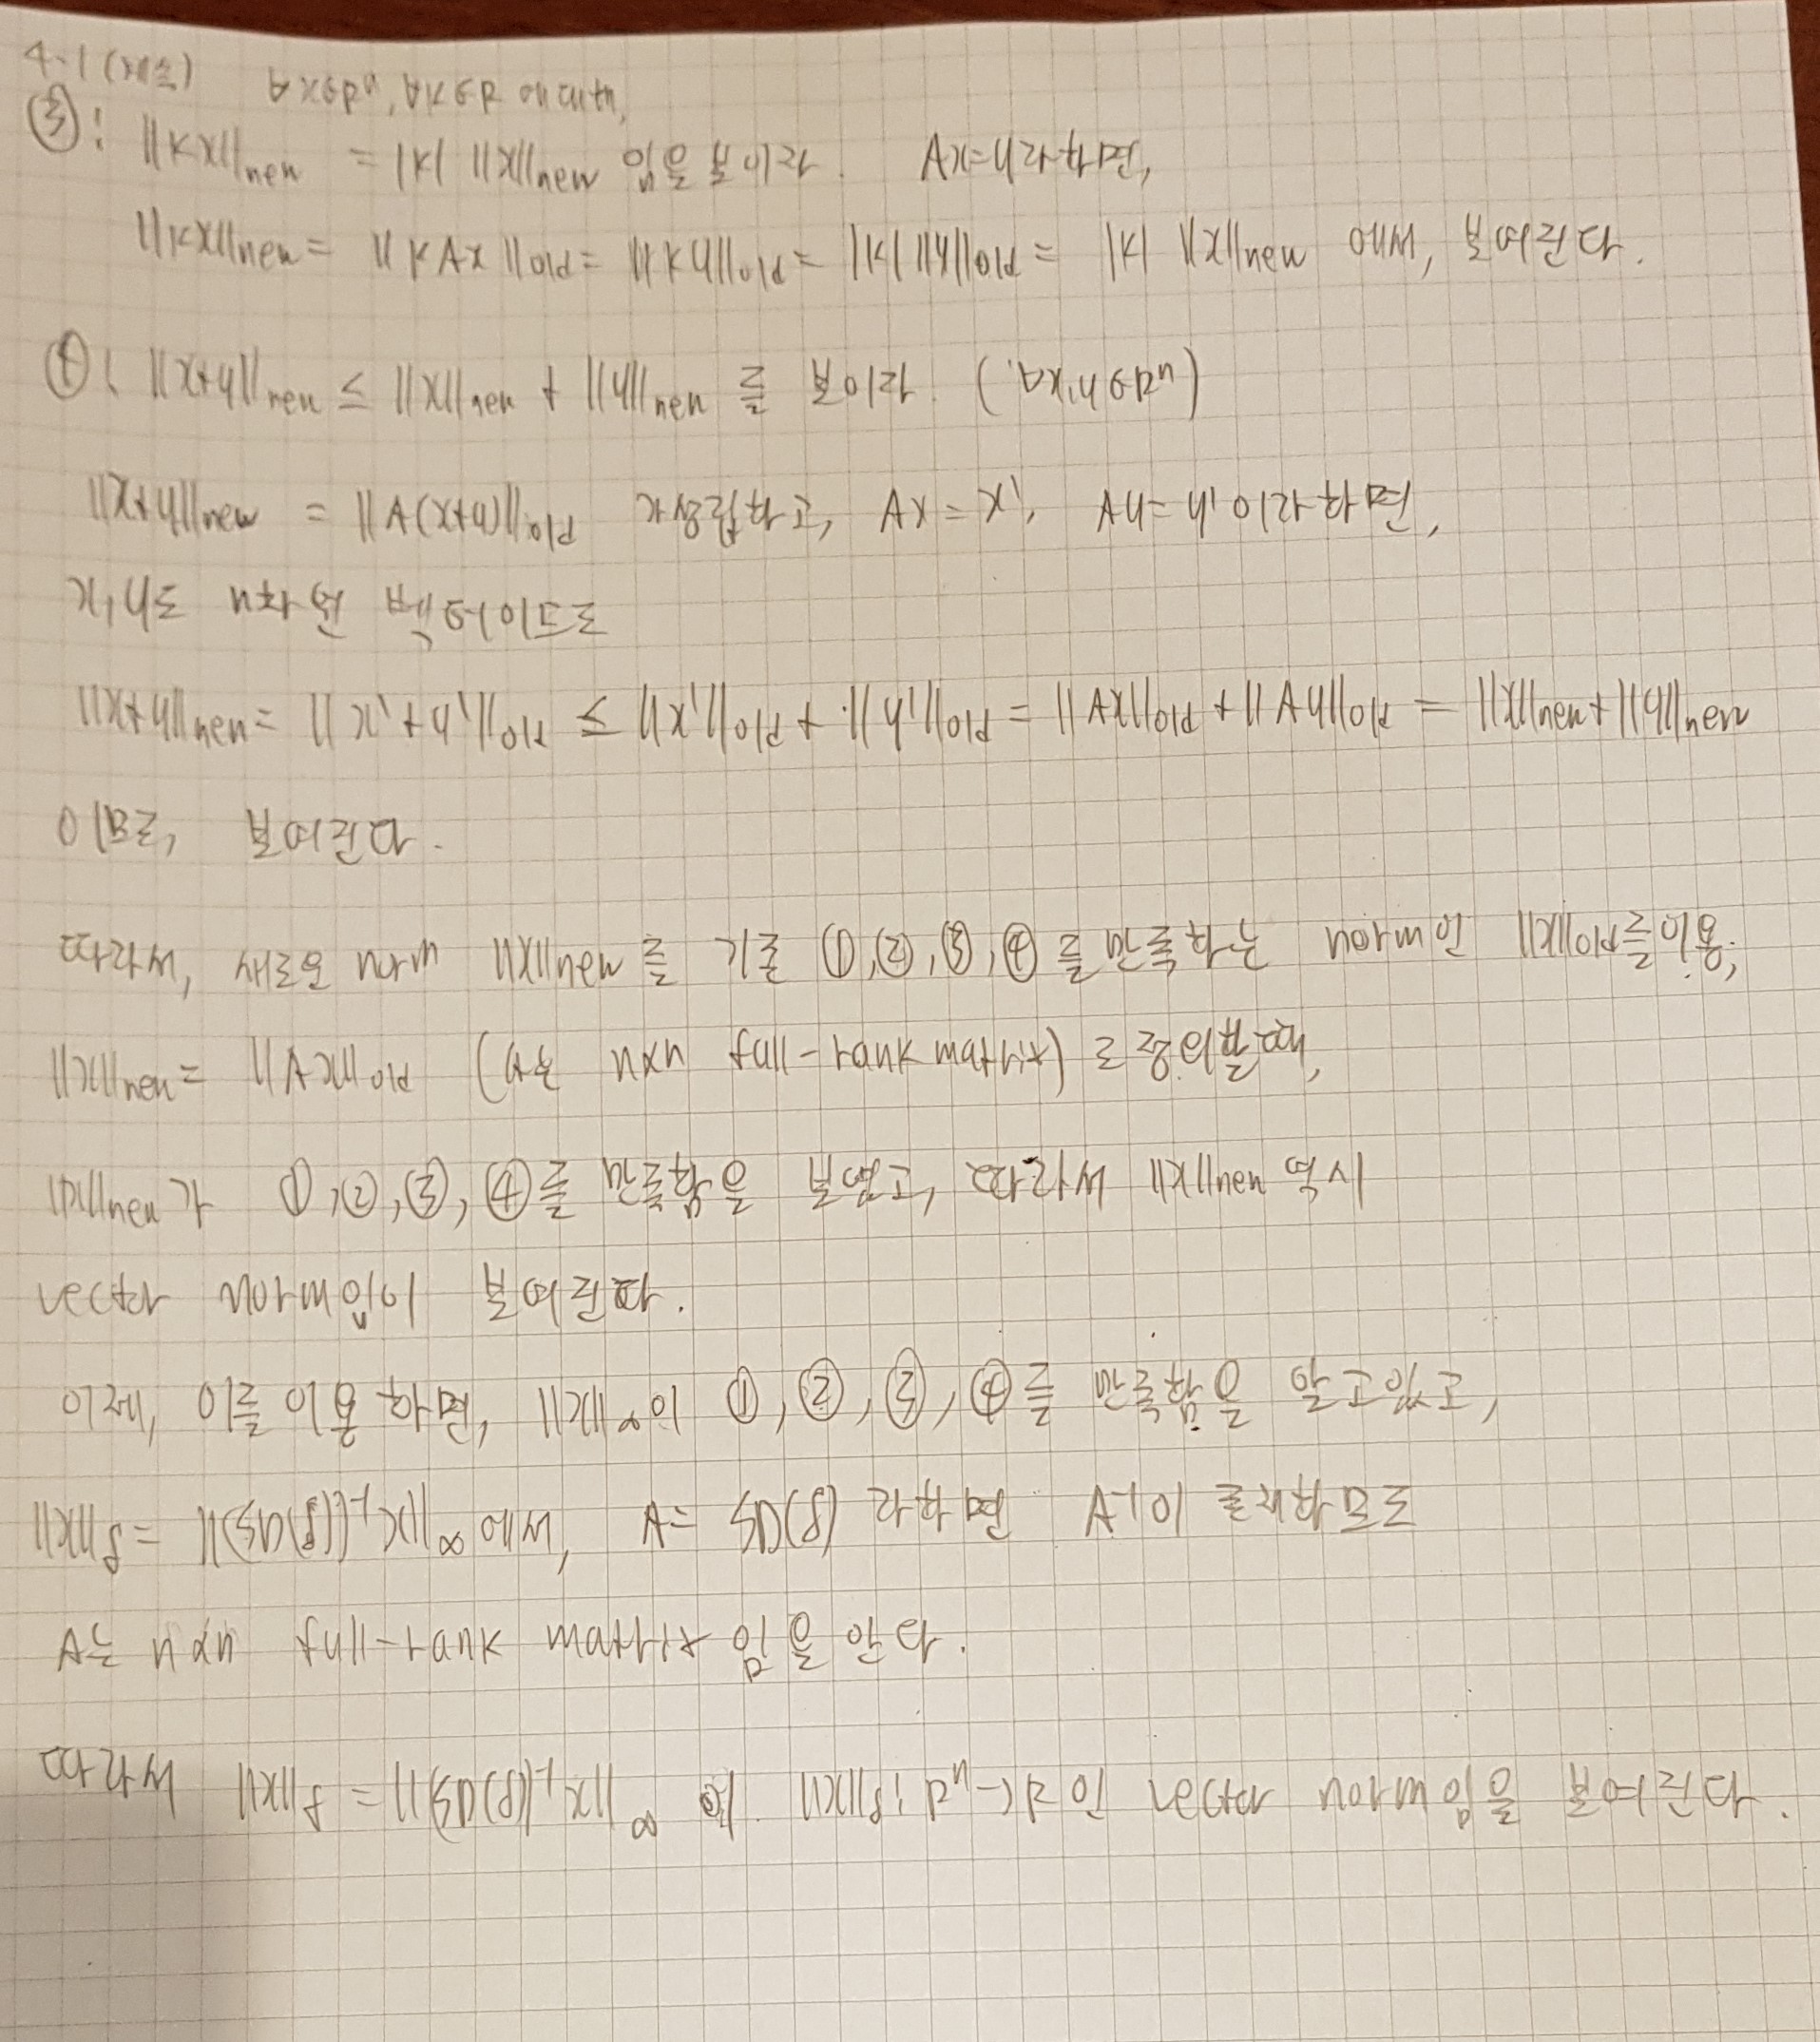 4-1 (계속) ∀x∈Rⁿ, ∀k∈R 에 대해,
③: ||kx||new = |k| ||x||new 임을 보이라. Ax=y라하면,
||kx||new = ||kAx||old = ||ky||old = |k| ||y||old = |k| ||x||new 에서, 보여진다.
④: ||x+y||new ≤ ||x||new + ||y||new 를 보이라. (∀x,y∈Rⁿ)
||x+y||new = ||A(x+y)||old 가성립하고, Ax=x', Ay=y'이라하면,
x,y도 n차원 벡터이므로
||x+y||new = ||x'+y'||old ≤ ||x'||old + ||y'||old = ||Ax||old + ||Ay||old = ||x||new + ||y||new
이므로, 보여진다.
따라서, 새로운 norm ||x||new를 기존 ①,②,③,④를 만족하는 norm인 ||x||old를이용,
||x||new = ||Ax||old (A는 n×n full-rank matrix)로 정의할때,
||x||new가 ①,②,③,④를 만족함을 보였고, 따라서 ||x||new 역시
vector norm임이 보여진다.
이제, 이를 이용하면, ||x||∞이 ①,②,③,④를 만족함을 알고있고,
||x||δ = ||(SD(δ))⁻¹x||∞ 에서, A = SD(δ) 라하면 A⁻¹이 존재하므로
A는 n×n full-rank matrix 임을 안다.
따라서 ||x||δ = ||(SD(δ))⁻¹x||∞ ||x||δ: Rⁿ→R 인 vector norm임을 보여진다.